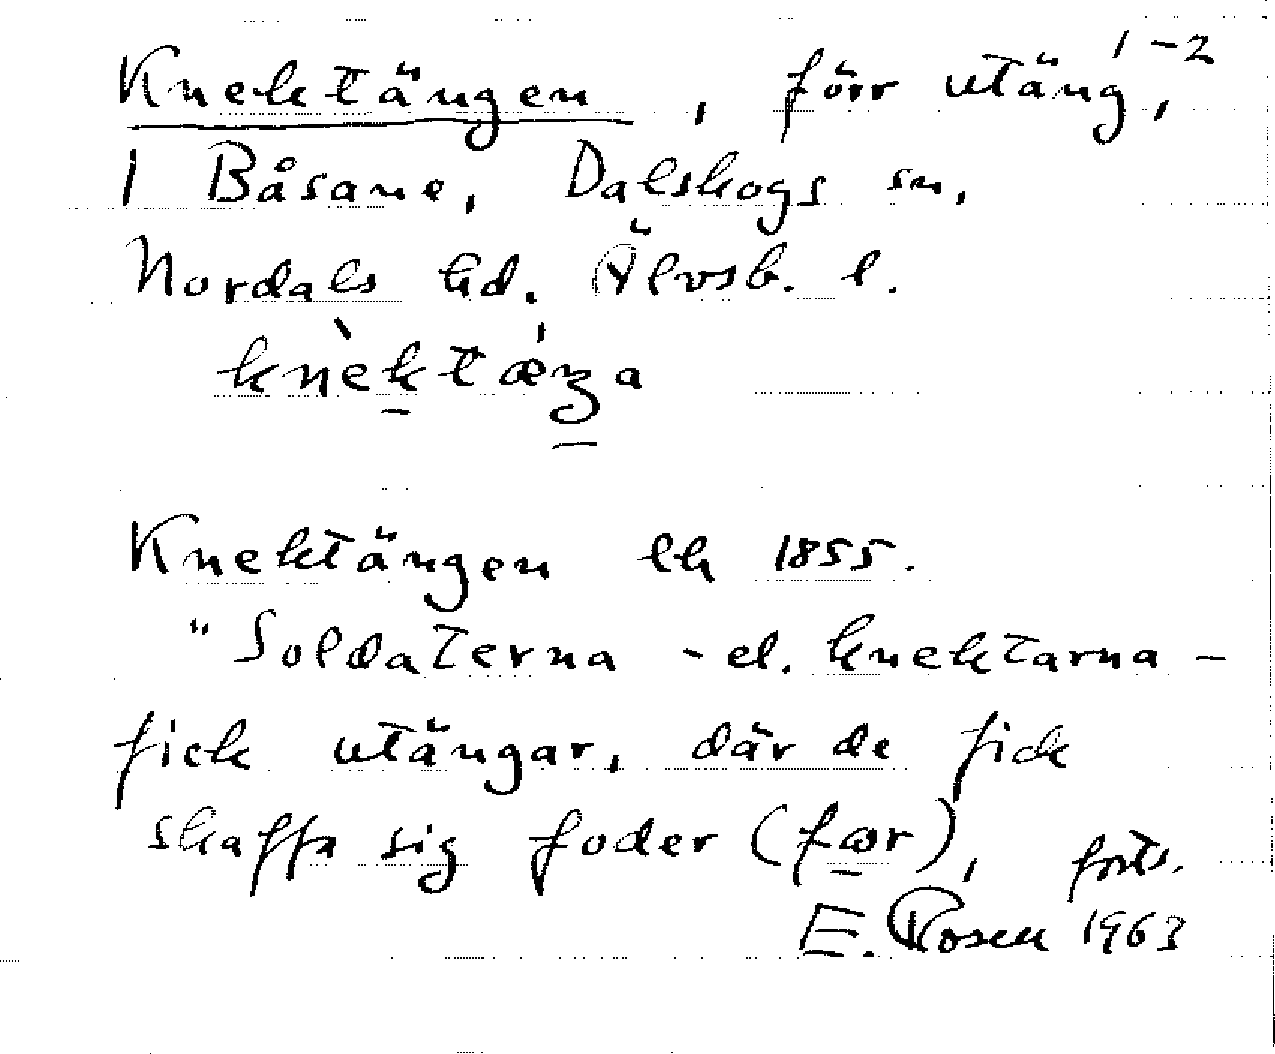 1-2
Knektängen, förr utäng,
1 Båsane, Dalskogs sn,
Nordals hd. Älvsb. l.
Knektängen lk 1855.
"Soldaterna - el. knektarna -
fick utängar, där de fick
skaffa sig foder (fωr), forts.
E. Rosen 1963